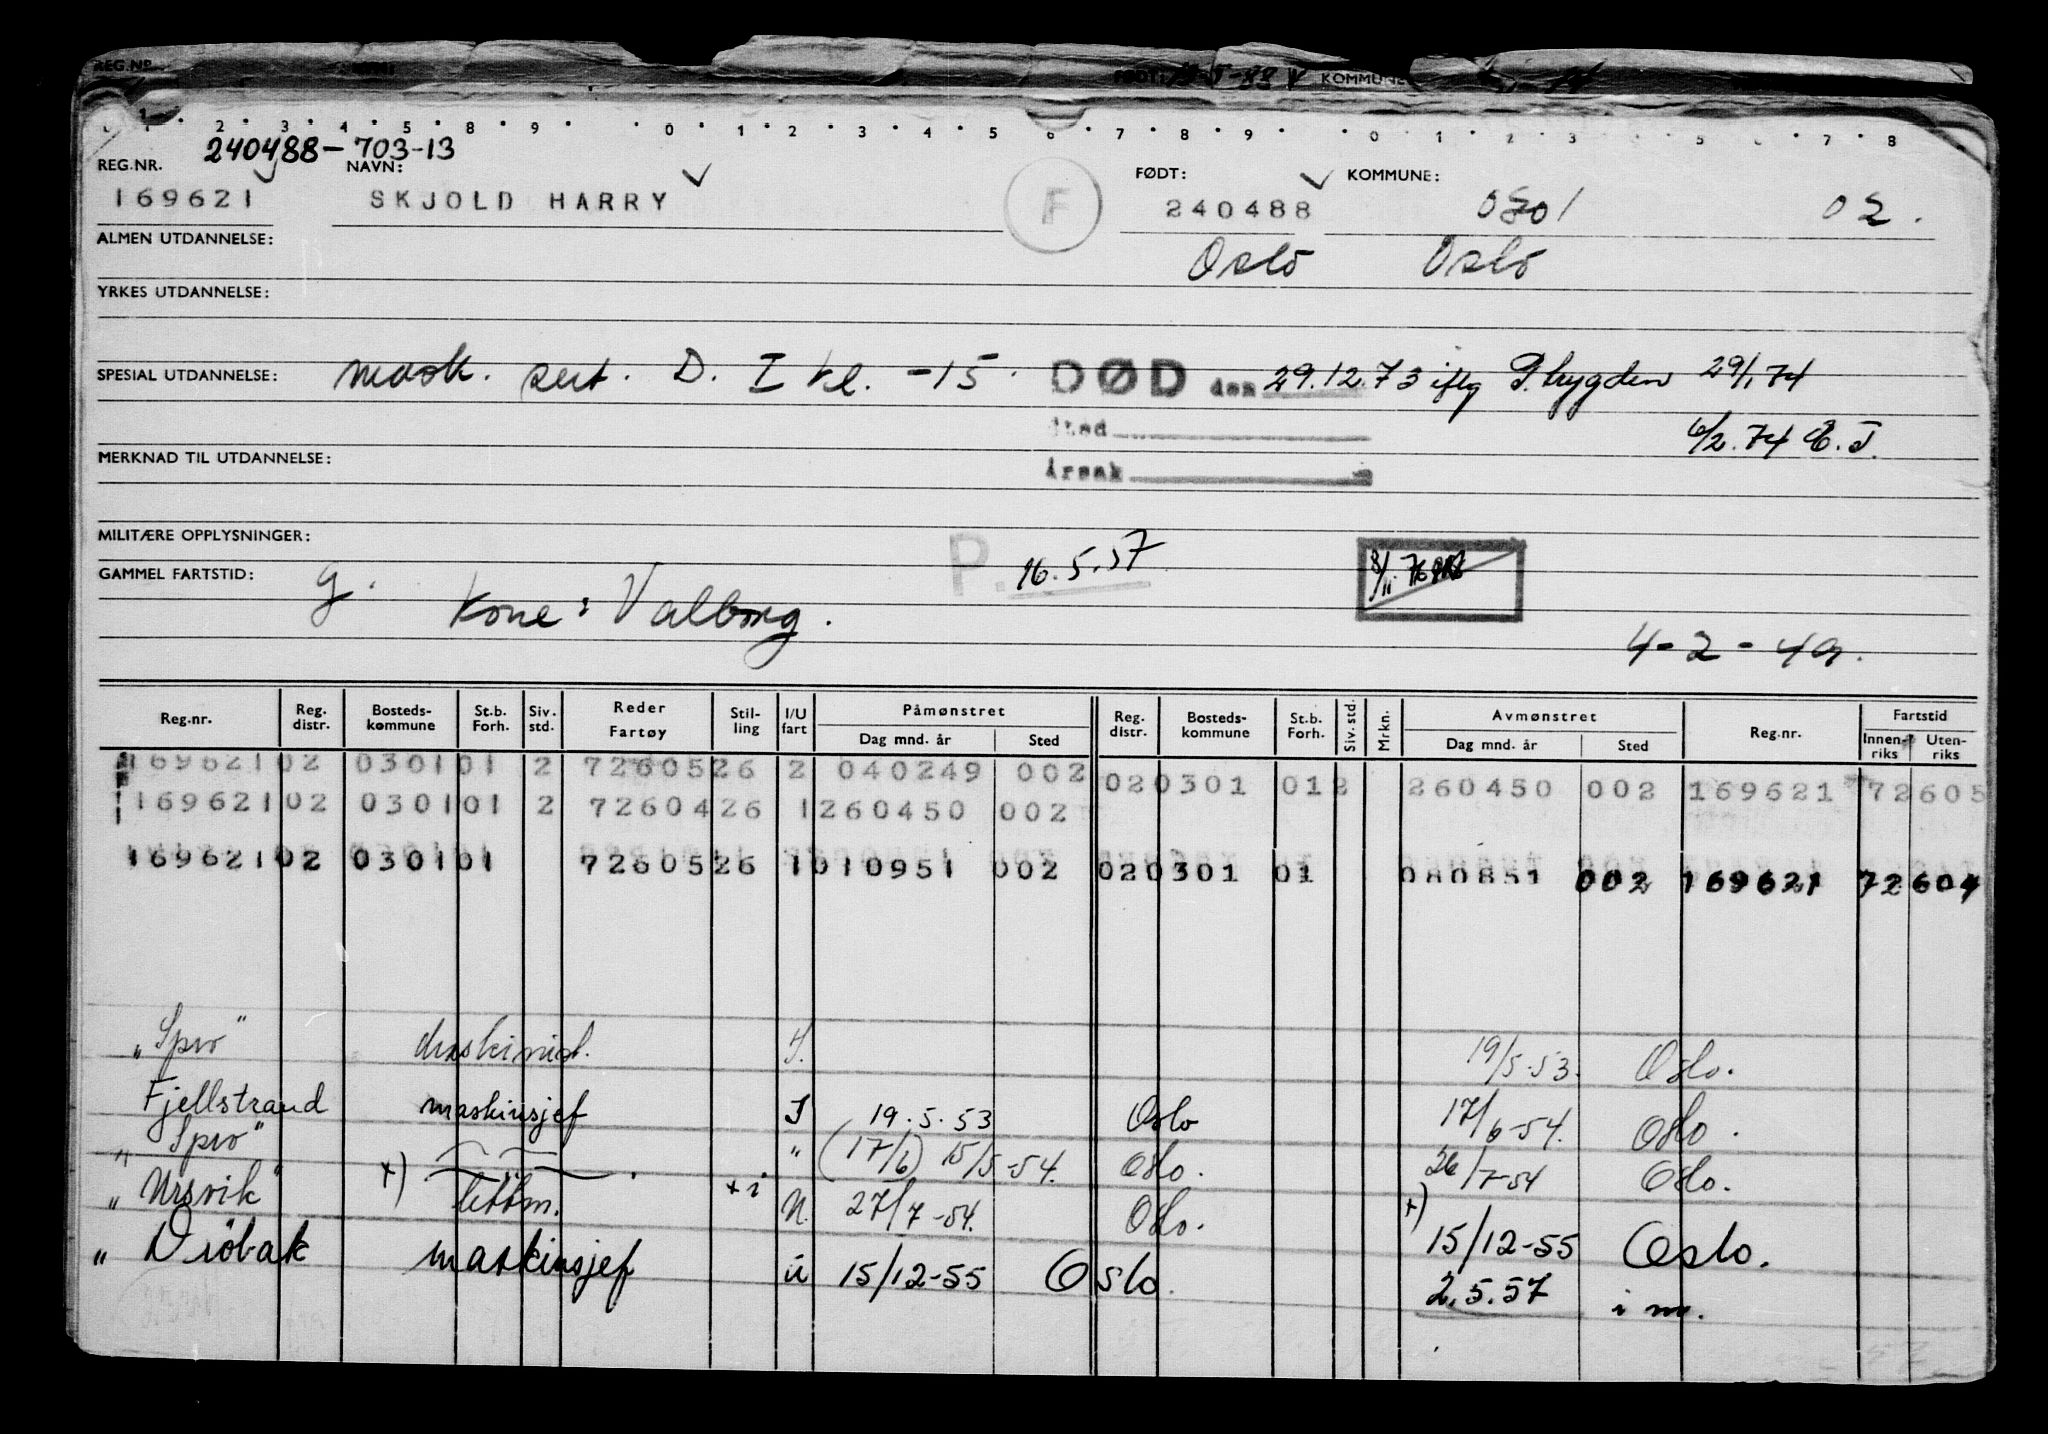 REG.NR. FØDT: KOMMUNE
240488-703-13
REG.NR. NAVN: FØDT: KOMMUNE:
169621 SKJOLD HARRY F 240488 02.
ALMEN UTDANNELSE: Oslo Oslo
YRKES UTDANNELSE:
SPESIAL UTDANNELSE: mask. sert. D. I kl. -15. DØD den 29.12.73 iflg P.trygden 29/1.74
Sted 6/2.74 E.J.
MERKNAD TIL UTDANNELSE: Årsak
MILITÆRE OPPLYSNINGER: P. 16.5.57
GAMMEL FARTSTID: g.
Kone: Valborg.
4-2-49.
Reg.nr. Reg. distr. Bosteds- kommune St.b. Forh. Siv. std. Reder Fartøy Stil- ling I/U fart Påmønstret Dag mnd. år Sted Reg. distr. Bosteds- kommune St.b. Forh. Siv. std. Mrkn. Avmønstret Dag mnd. år Sted Reg.nr. Fartstid Innen- riks Uten- riks
169621 02 0301 01 2 72605 26 2 040249 002 02 0301 01 2 260450 002 169621 72605
169621 02 0301 01 2 72604 26 1 260450 002
169621 02 0301 01 72605 26 1 010951 002 02 0301 01 080851 002 169621 72604
"Spro" maskinist. I. 19/5-53. Oslo.
Fjellstrand maskinsjef I 19.5.53 Oslo 17/6-54. Oslo.
"Spro" " (17/6) 15/5-54. Oslo. 26/7-54 Oslo.
"Ursvik" +) lettm. + i U. 27/7-54. Oslo. +) 15/12-55 Oslo.
" Drøbak maskinsjef u 15/12-55 Oslo. 2.5.57 i m.